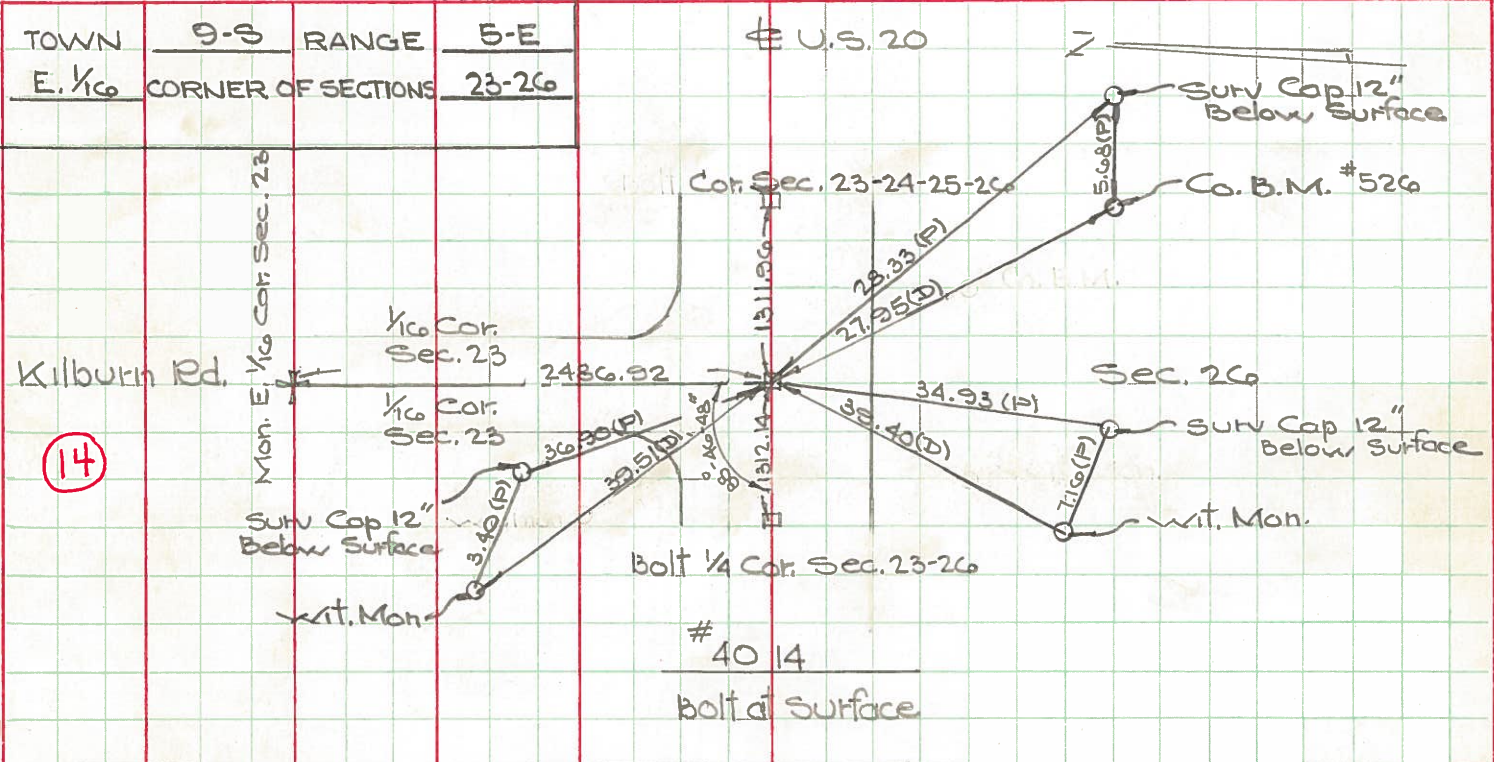 TOWN 9-S RANGE 5-E
E. 1/16 CORNER OF SECTIONS 23-26
℄ U.S. 20
Z
Surv Cap 12"
Below Surface
5.68(P)
Co. B.M. #526
Cor. Sec. 23-24-25-26
Mon. E. 1/16 Cor. Sec. 23
1311.96
28.33(P)
27.95(D)
1/16 Cor.
Sec. 23
Kilburn Rd.
2436.92
Sec. 26
1/16 Cor.
Sec. 23
34.93(P)
38.40(D)
Surv Cap 12"
Below Surface
7.16(P)
Wit. Mon.
14
36.30(P)
39.51(D)
88°-46'-48"
1312.14
Surv Cap 12"
Below Surface
3.40(P)
Wit. Mon
Bolt 1/4 Cor. Sec. 23-26
#4014
Bolt at Surface